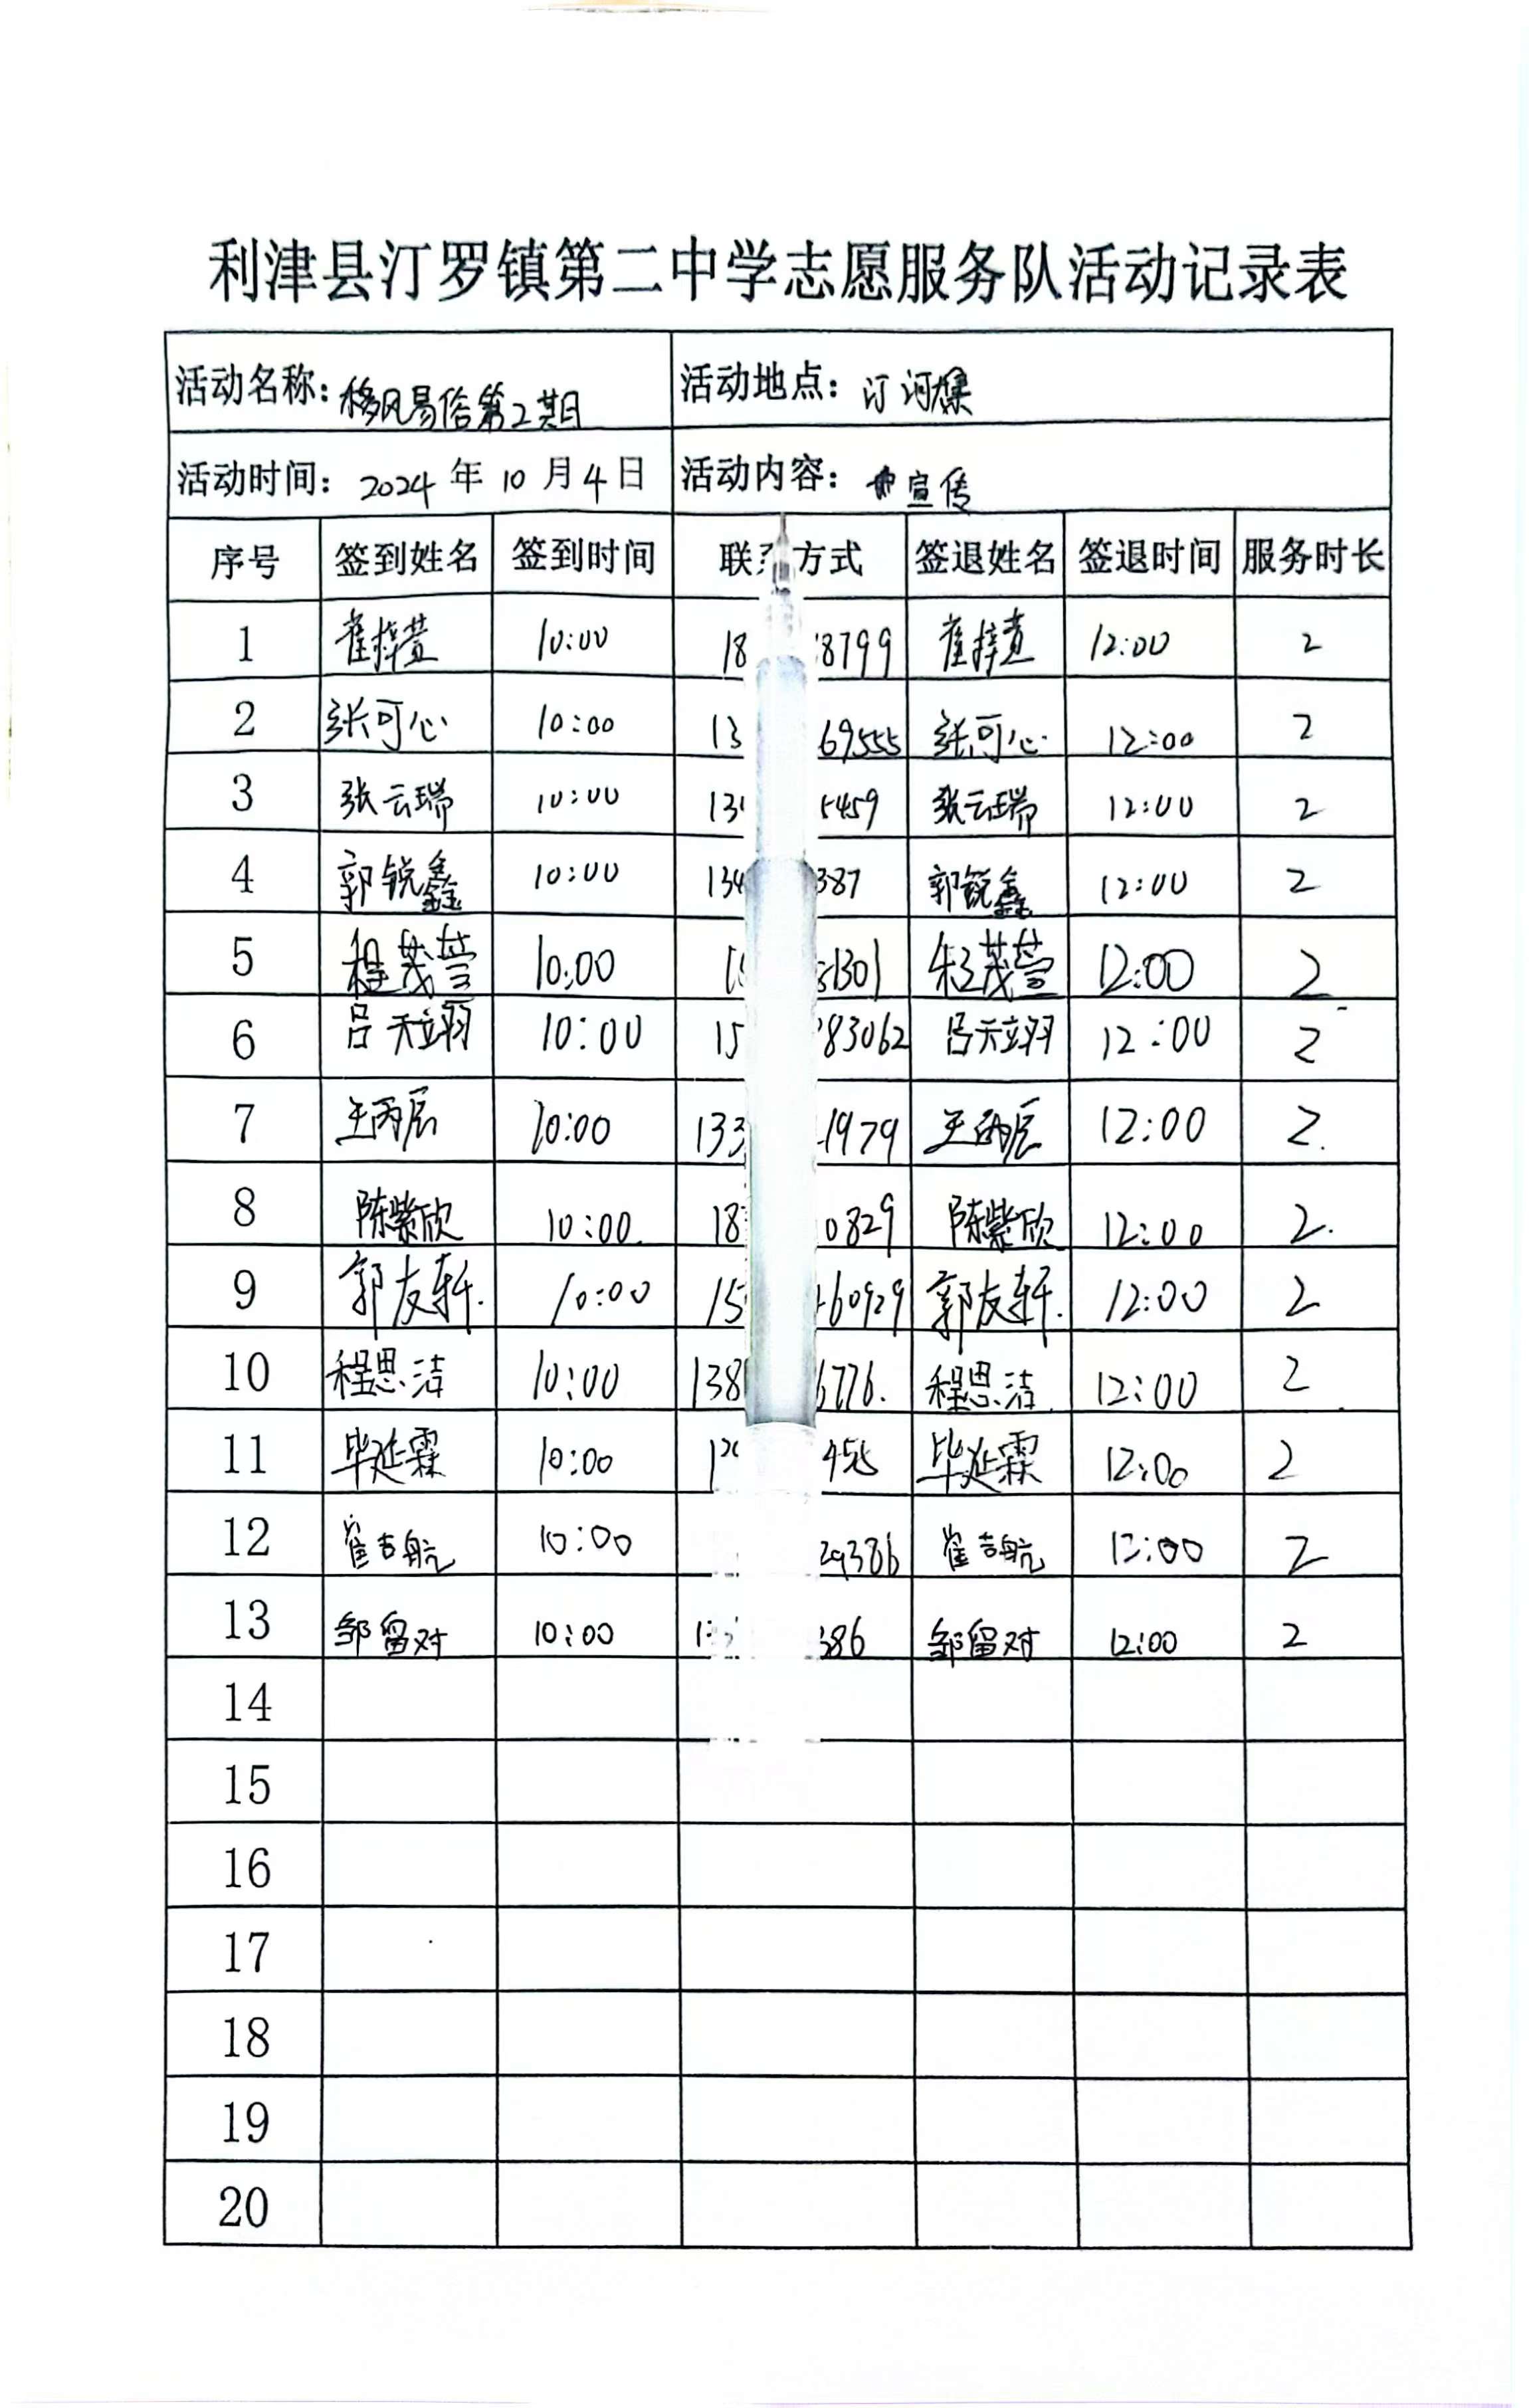 利津县汀罗镇第二中学志愿服务队活动记录表
活动名称: 移风易俗第2期 活动地点: 汀河
活动时间: 2024 年 10 月 4 日 活动内容: 宣传
序号 签到姓名 签到时间 联 方式 签退姓名 签退时间 服务时长
1 崔梓萱 10:00 18 8799 崔梓萱 12:00 2
2 张可心 10:00 13 69555 张可心 12:00 2
3 张云瑞 10:00 13 5459 张云瑞 12:00 2
4 郭锐鑫 10:00 134 387 郭锐鑫 12:00 2
5 程茂萱 10:00 1301 程茂萱 12:00 2
6 吕天翊 10:00 15 83062 吕天翊 12:00 2
7 王丙辰 10:00 133 1979 王丙辰 12:00 2.
8 陈紫欣 10:00. 18 0829 陈紫欣 12:00 2.
9 郭友轩. 10:00 15 60929 郭友轩. 12:00 2
10 程思洁 10:00 138 6776. 程思洁. 12:00 2
11 毕延霖 10:00 1 455 毕延霖 12:00 2
12 崔吉航 10:00 29386 崔吉航 12:00 2
13 邹留对 10:00 1 386 邹留对 12:00 2
14
15
16
17
18
19
20